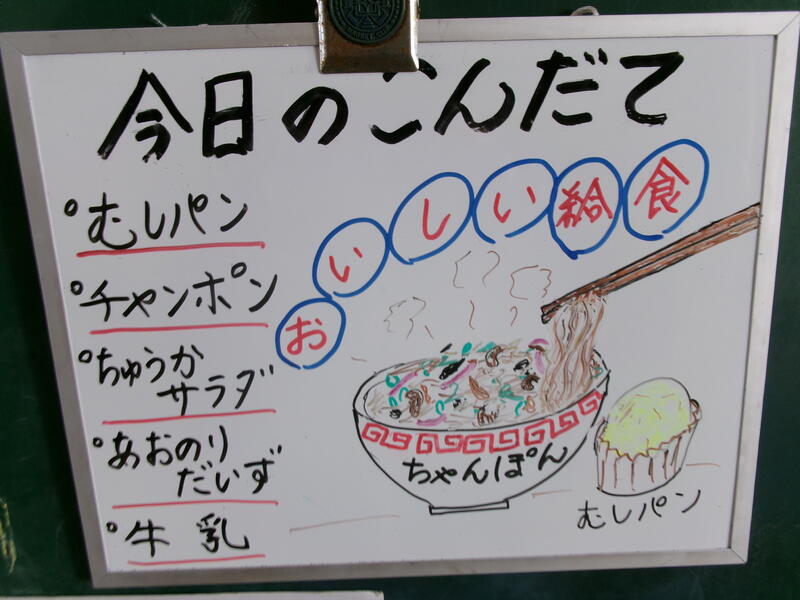 今日のこんだて
おいしい給食
°むしパン
°チャンポン
°ちゅうか
サラダ
°あおのり
だいず
°牛乳
ちゃんぽん
むしパン